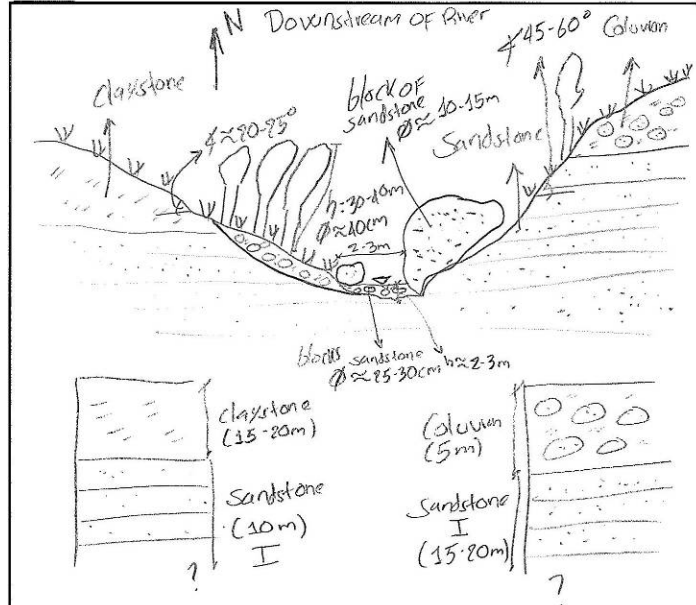 N Downstream of River
∡45-60° Coluvion
Claystone
block of
sandstone
Ø≈10-15m
∡≈20-25°
Sandstone
h=30-40m
Ø≈40cm
2-3m
blocks sandstone
Ø≈25-30cm h≈2-3m
Claystone
(15-20m)
Sandstone
(10m)
I
?
Coluvion
(5m)
Sandstone
I
(15-20m)
?